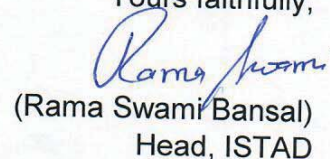 Yours faithfully,
Rama Swami
(Rama Swami Bansal)
Head, ISTAD